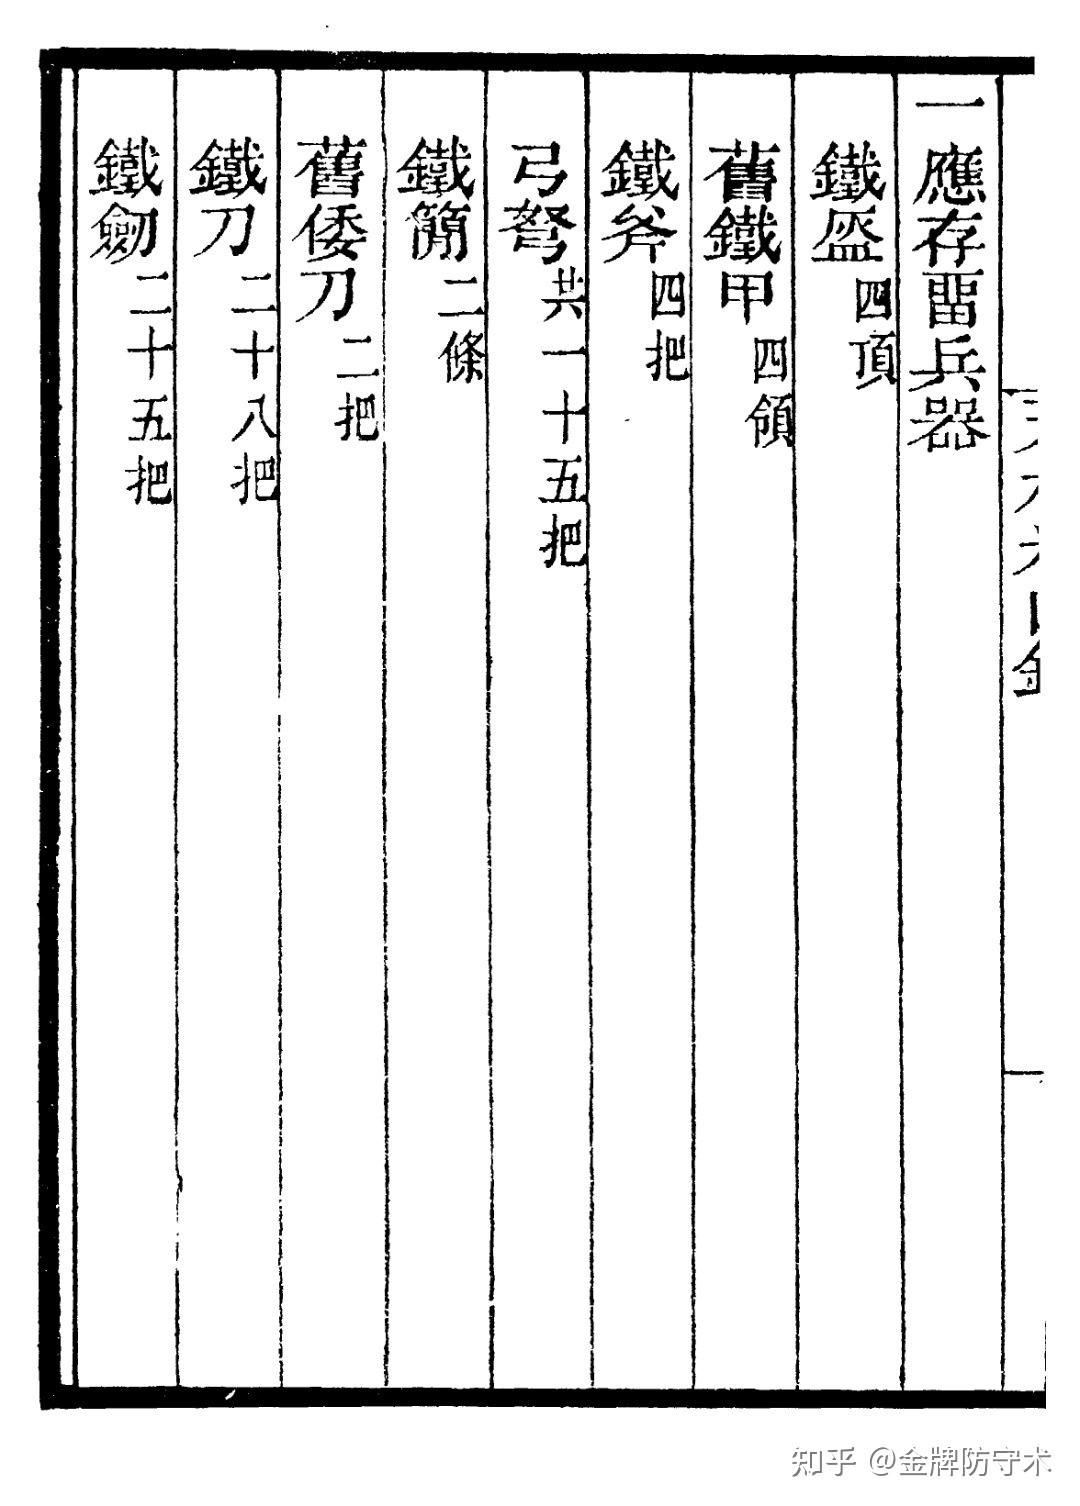 一應存畱兵器
鐵盔四頂
舊鐵甲四領
鐵斧四把
弓弩共一十五把
鐵簡二條
舊倭刀二把
鐵刀二十八把
鐵劒二十五把
知乎 @金牌防守术